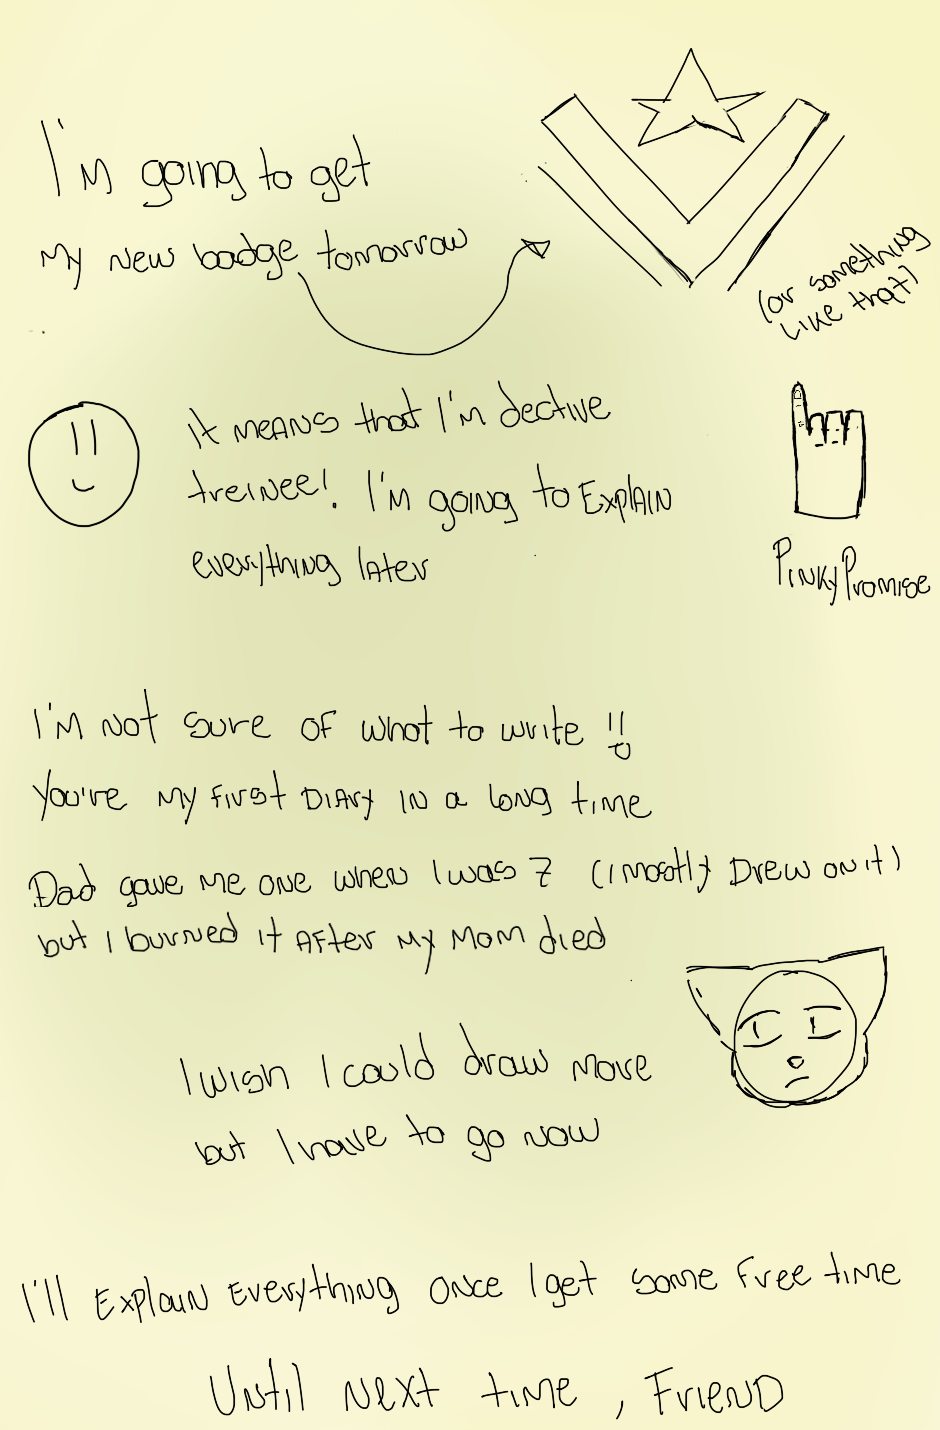 I'm going to get
my new badge tomorrow
(or something
like that)
it means that I'm dective
treinee! I'm going to Explain
everything later
Pinky Promise
I'm not sure of what to write !!
You're my first Diary in a long time
Dad gave me one when I was 7 (I mostly Drew on it)
but I burned it after my Mom died
I wish I could draw more
but I have to go now
I'll Explain Everything once I get some free time
Until next time, Friend